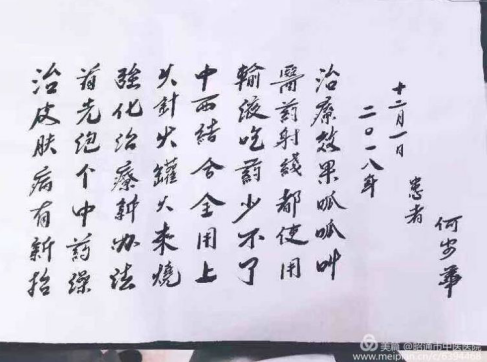 治皮肤病有新招
首先泡个中药澡
強化治療新办法
火針火罐火来燒
中西结合全用上
輸液吃药少不了
醫药射綫都使用
治療效果呱呱叫
二〇一八年
十二月一日
患者
何華
美篇 @昭通市中医医院